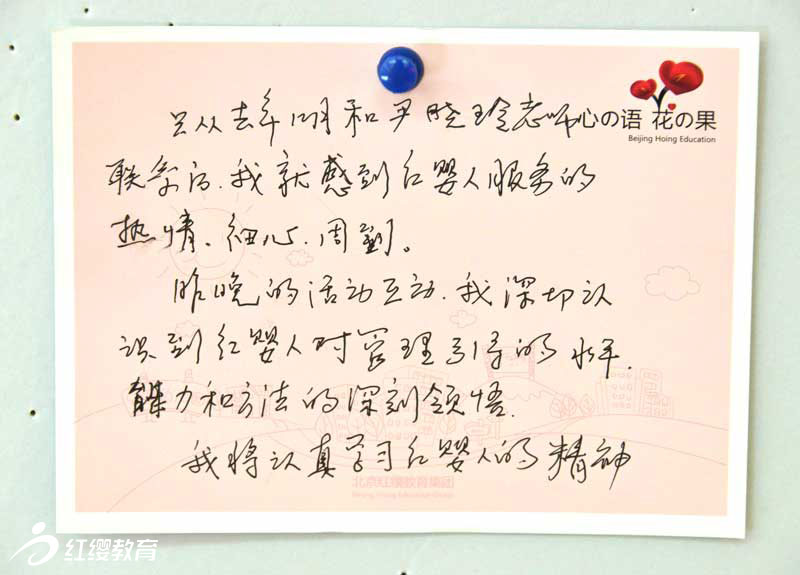 心の语 花の果
Beijing Hoing Education
只从去年12月和尹晓玲老师
联系后、我就感到红婴人服务的
热情、细心、周到。
昨晚的活动互动、我深切认
识到红婴人对管理引导的水平、
能力和方法的深刻领悟.
我将认真学习红婴人的精神
北京红缨教育集团
Beijing Hoing Education Group
红缨教育